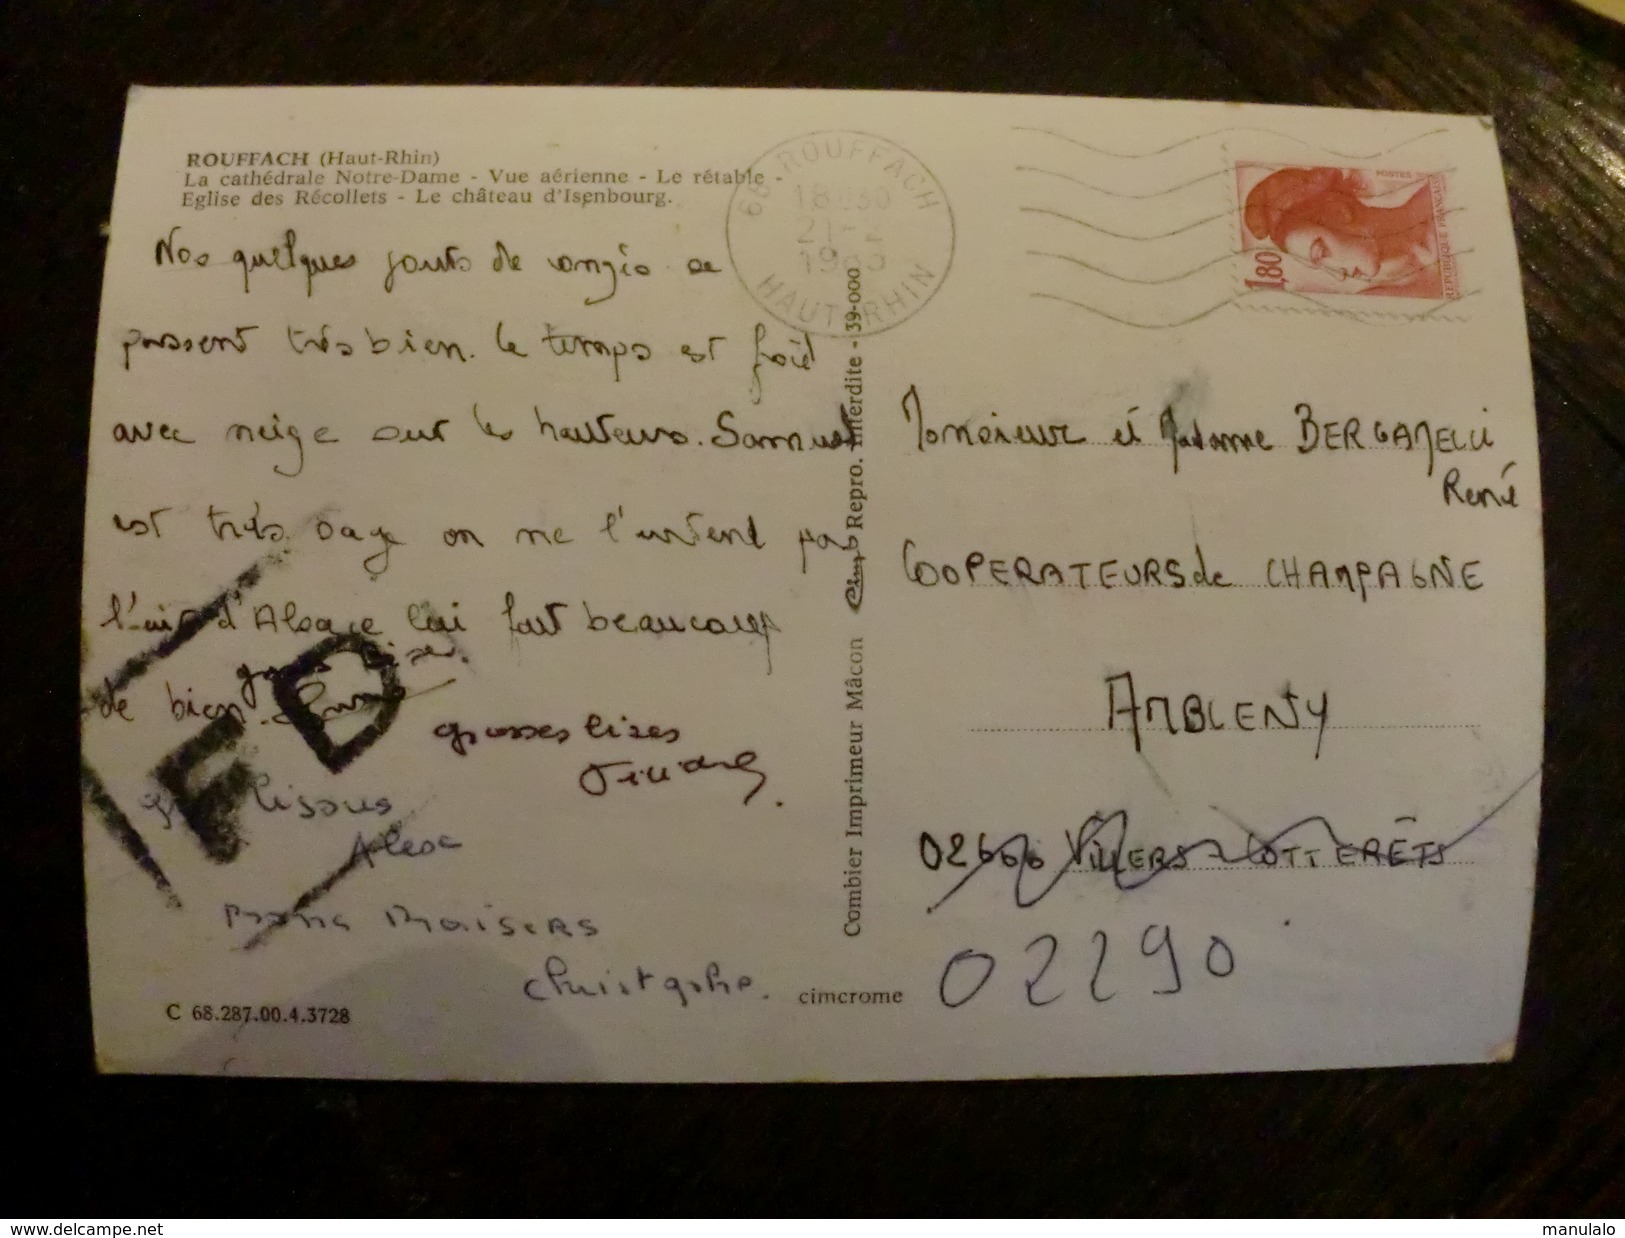 ROUFFACH (Haut-Rhin)
La cathédrale Notre-Dame - Vue aérienne - Le rétable -
Eglise des Récollets - Le château d'Isenbourg.
Nos quelques jours de congés se
passent très bien. Le temps est froid
avec neige sur les hauteurs. Samuel
est très sage on ne l'entend pas
l'air d'Alsace lui fait beaucoup
de bien.
grosses bises
bisous
Christophe.
C 68.287.00.4.3728
cimcrome
Combier Imprimeur Mâcon Repro. Interdite - 39-000
68 ROUFFACH
HAUT-RHIN
POSTES
1,80
REPUBLIQUE FRANÇAISE
Monsieur et Madame BERGAMELLI
René
COOPERATEURS de CHAMPAGNE
AMBLENY
02600 VILLERS-COTTERÊTS
02290
FD
www.delcampe.net
manulalo